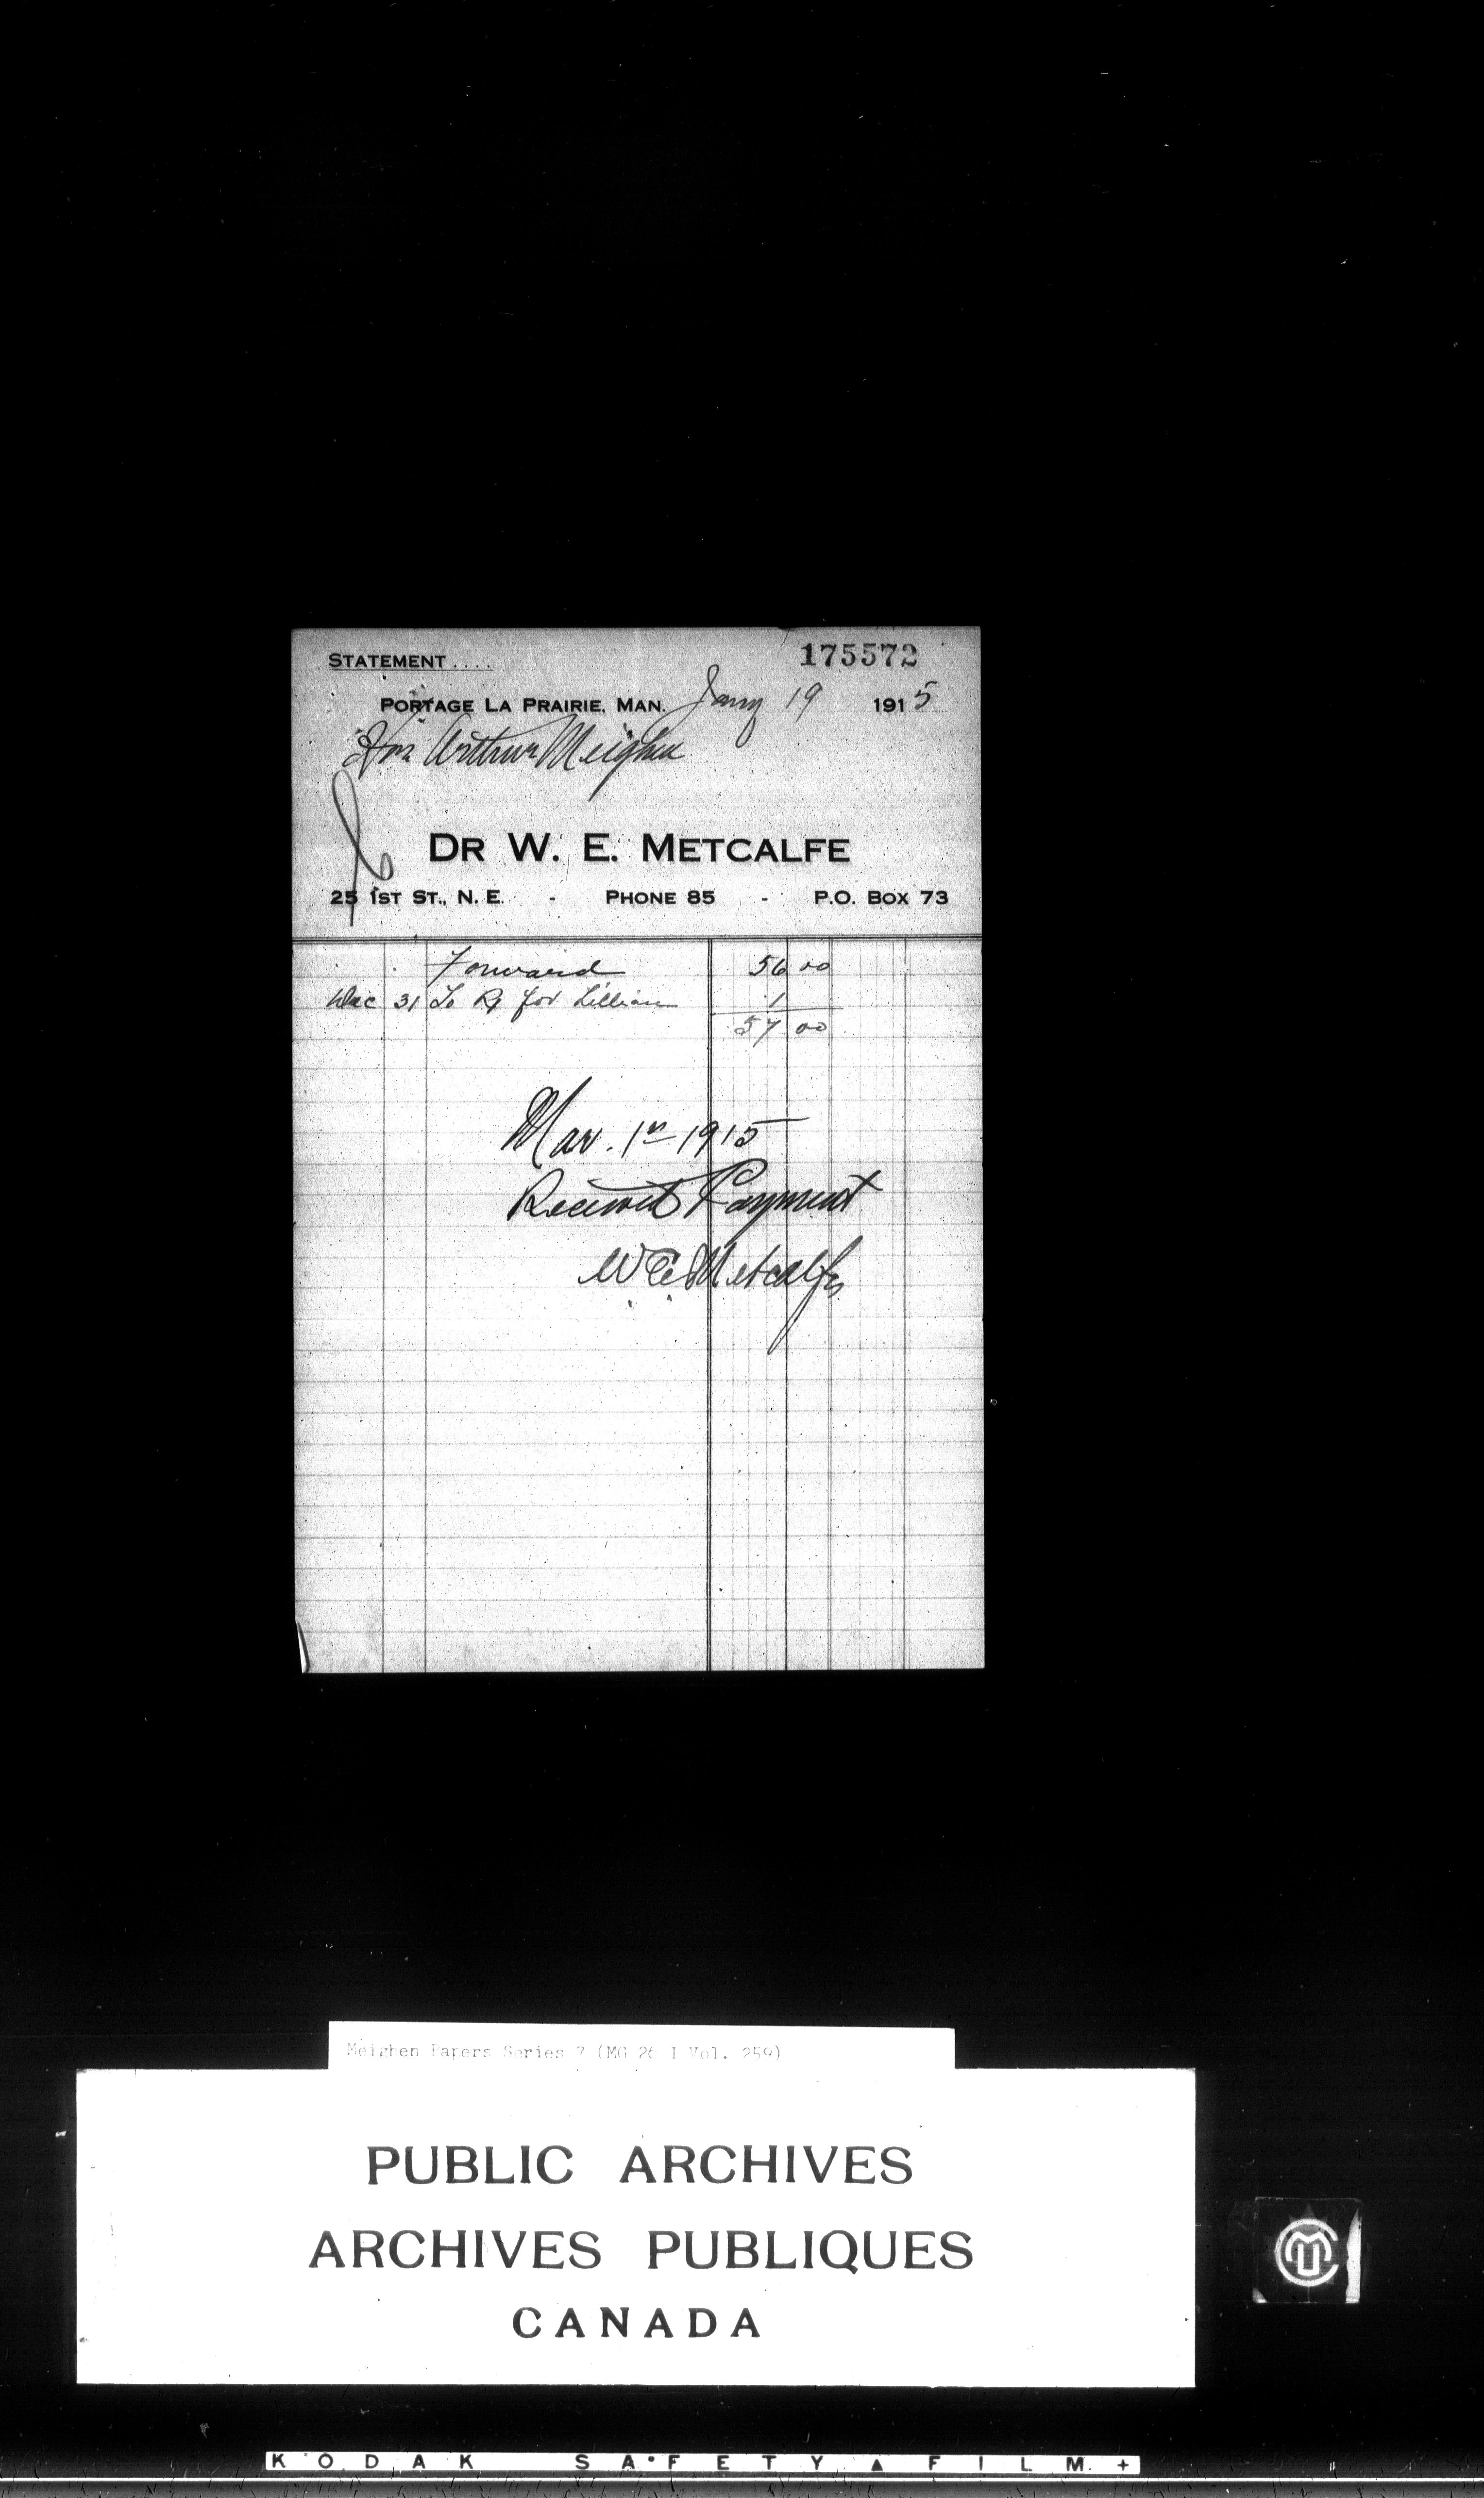 STATEMENT....
175572
PORTAGE LA PRAIRIE, MAN. Jany 19 1915
Hon Arthur Meighen
DR W. E. METCALFE
25 1ST ST., N. E. - PHONE 85 - P.O. BOX 73
Forward 56 00
Dec 31 To Rx for Lillian 1
57 00
Mar. 1st 1915
Received Payment
W E Metcalfe
Meighen Papers Series 7 (MG 26 I Vol. 259)
PUBLIC ARCHIVES
ARCHIVES PUBLIQUES
CANADA
KODAK SAFETY ▲ FILM +